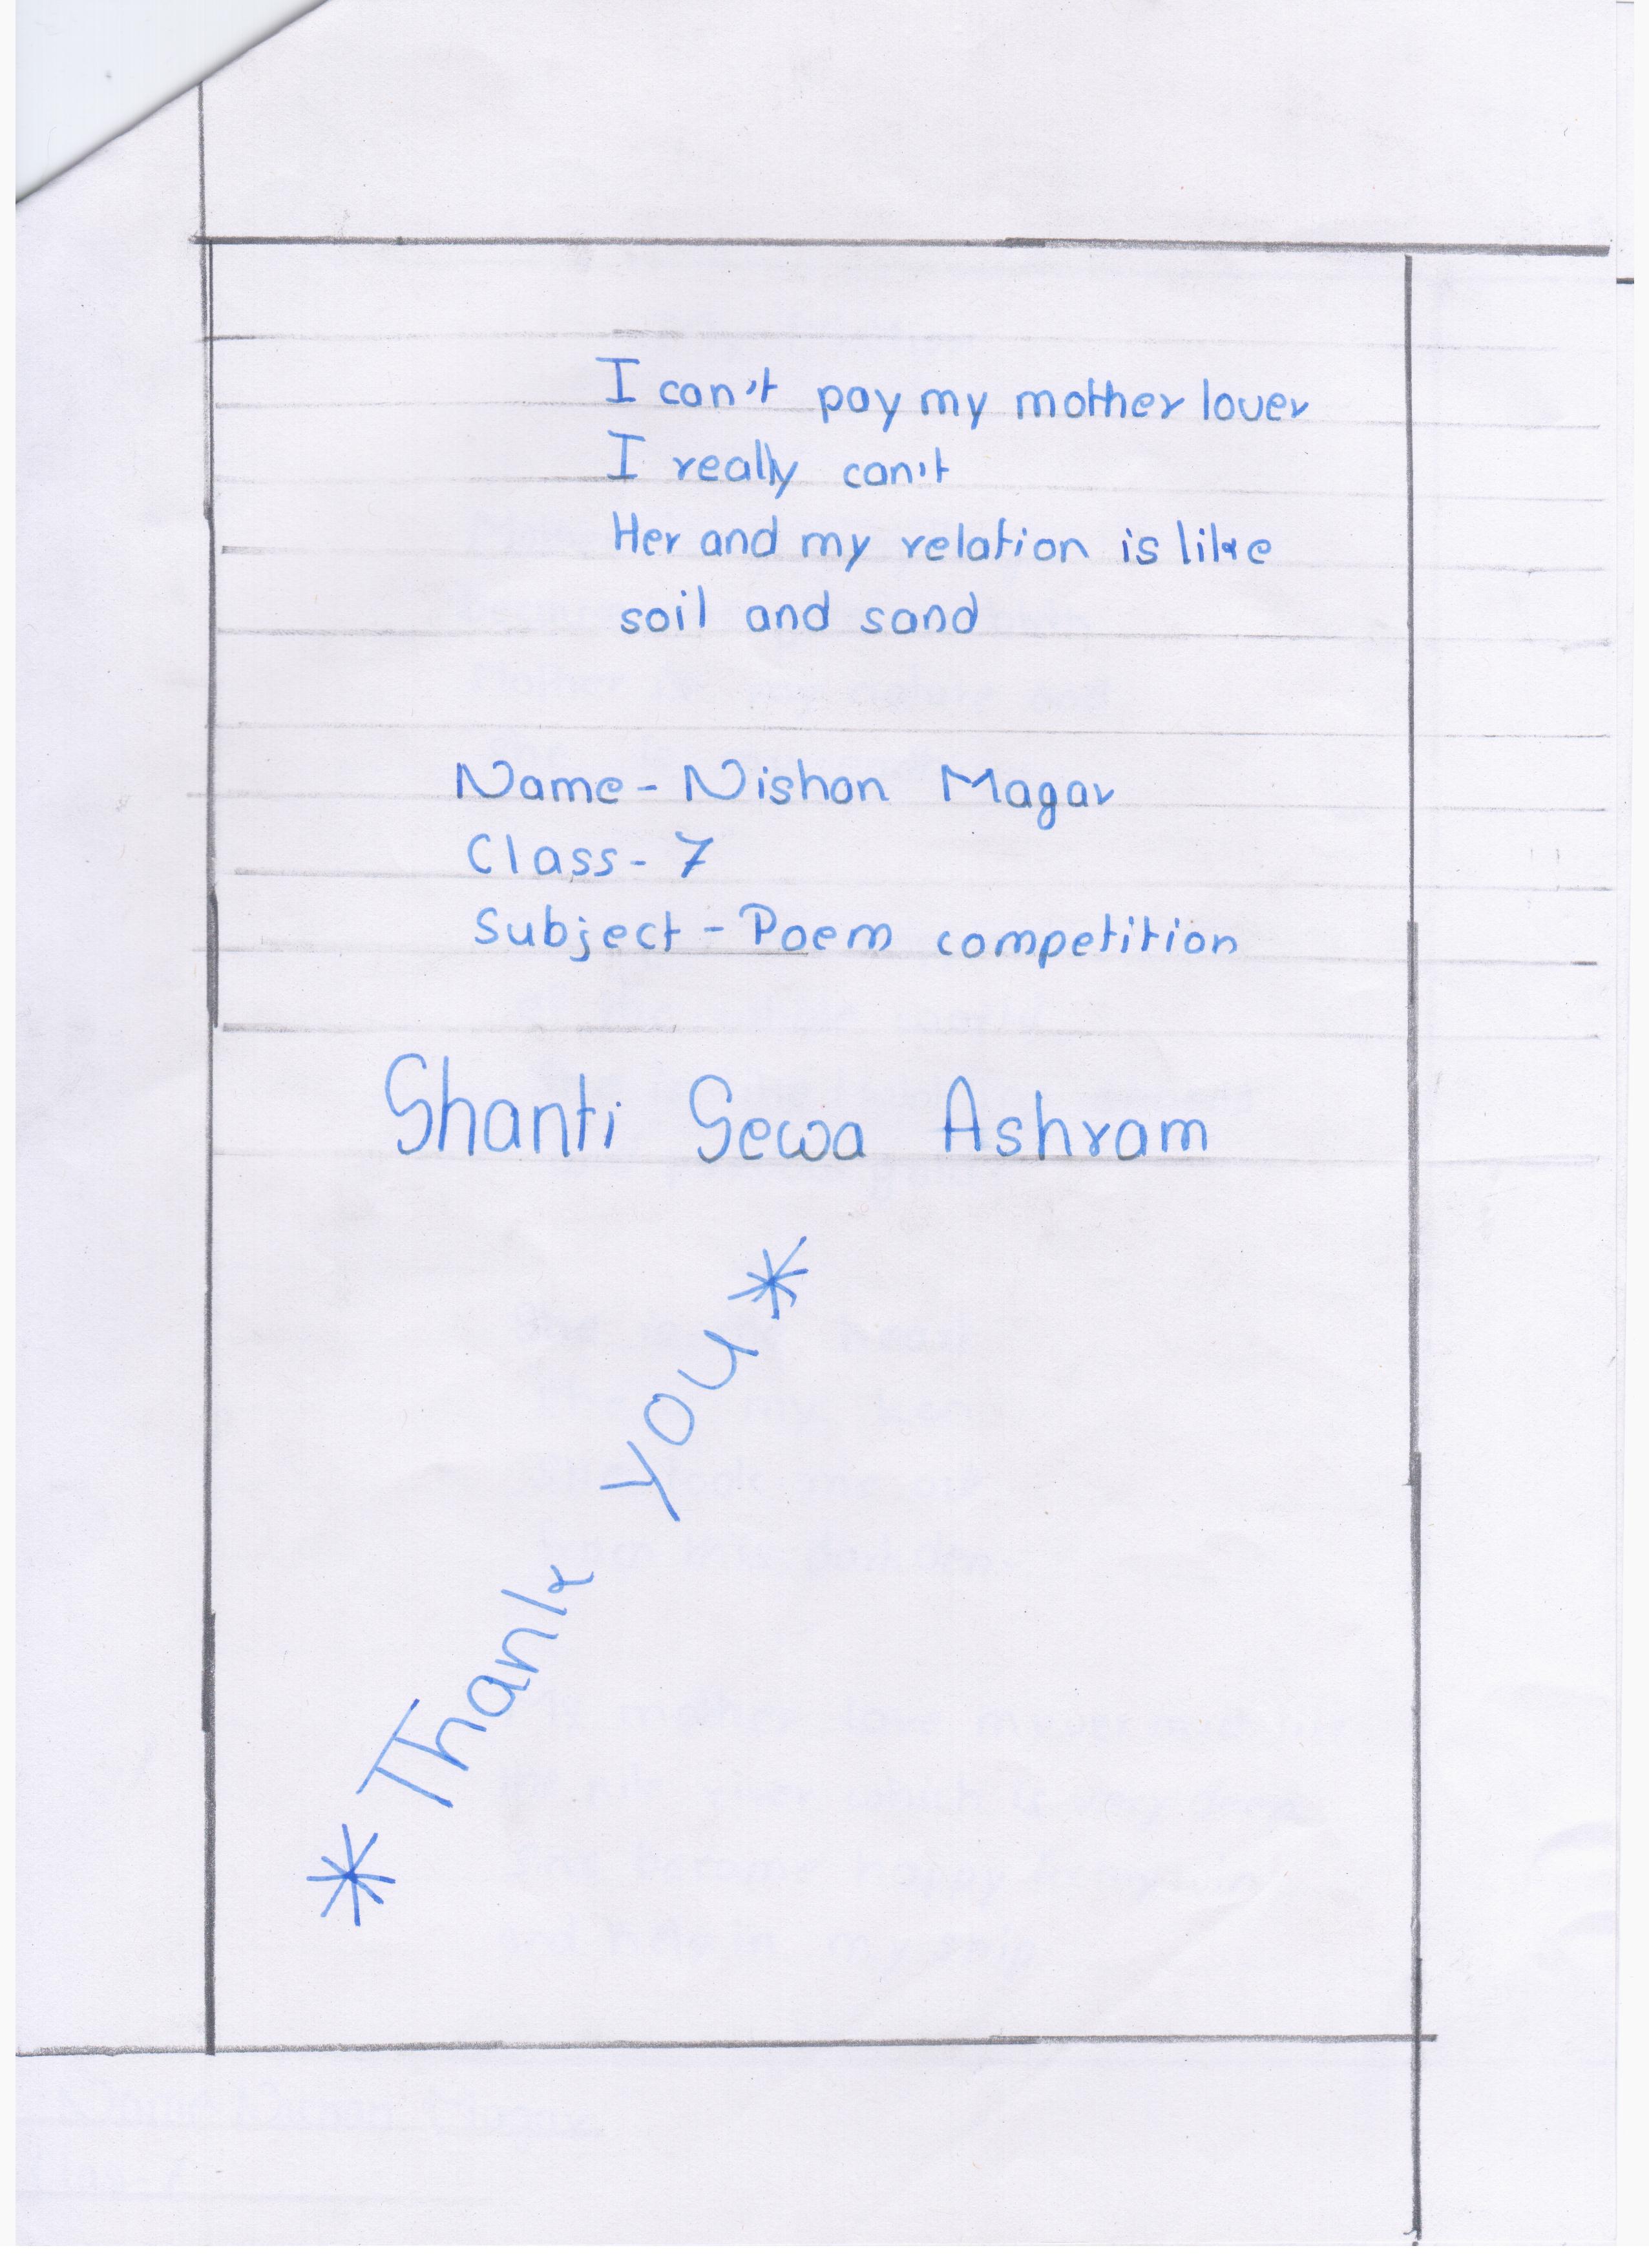 I can't pay my mother lover
I really can't
Her and my relation is like
soil and sand
Name - Nishan Magar
Class - 7
Subject - Poem competition
Shanti Sewa Ashram
* Thank you *